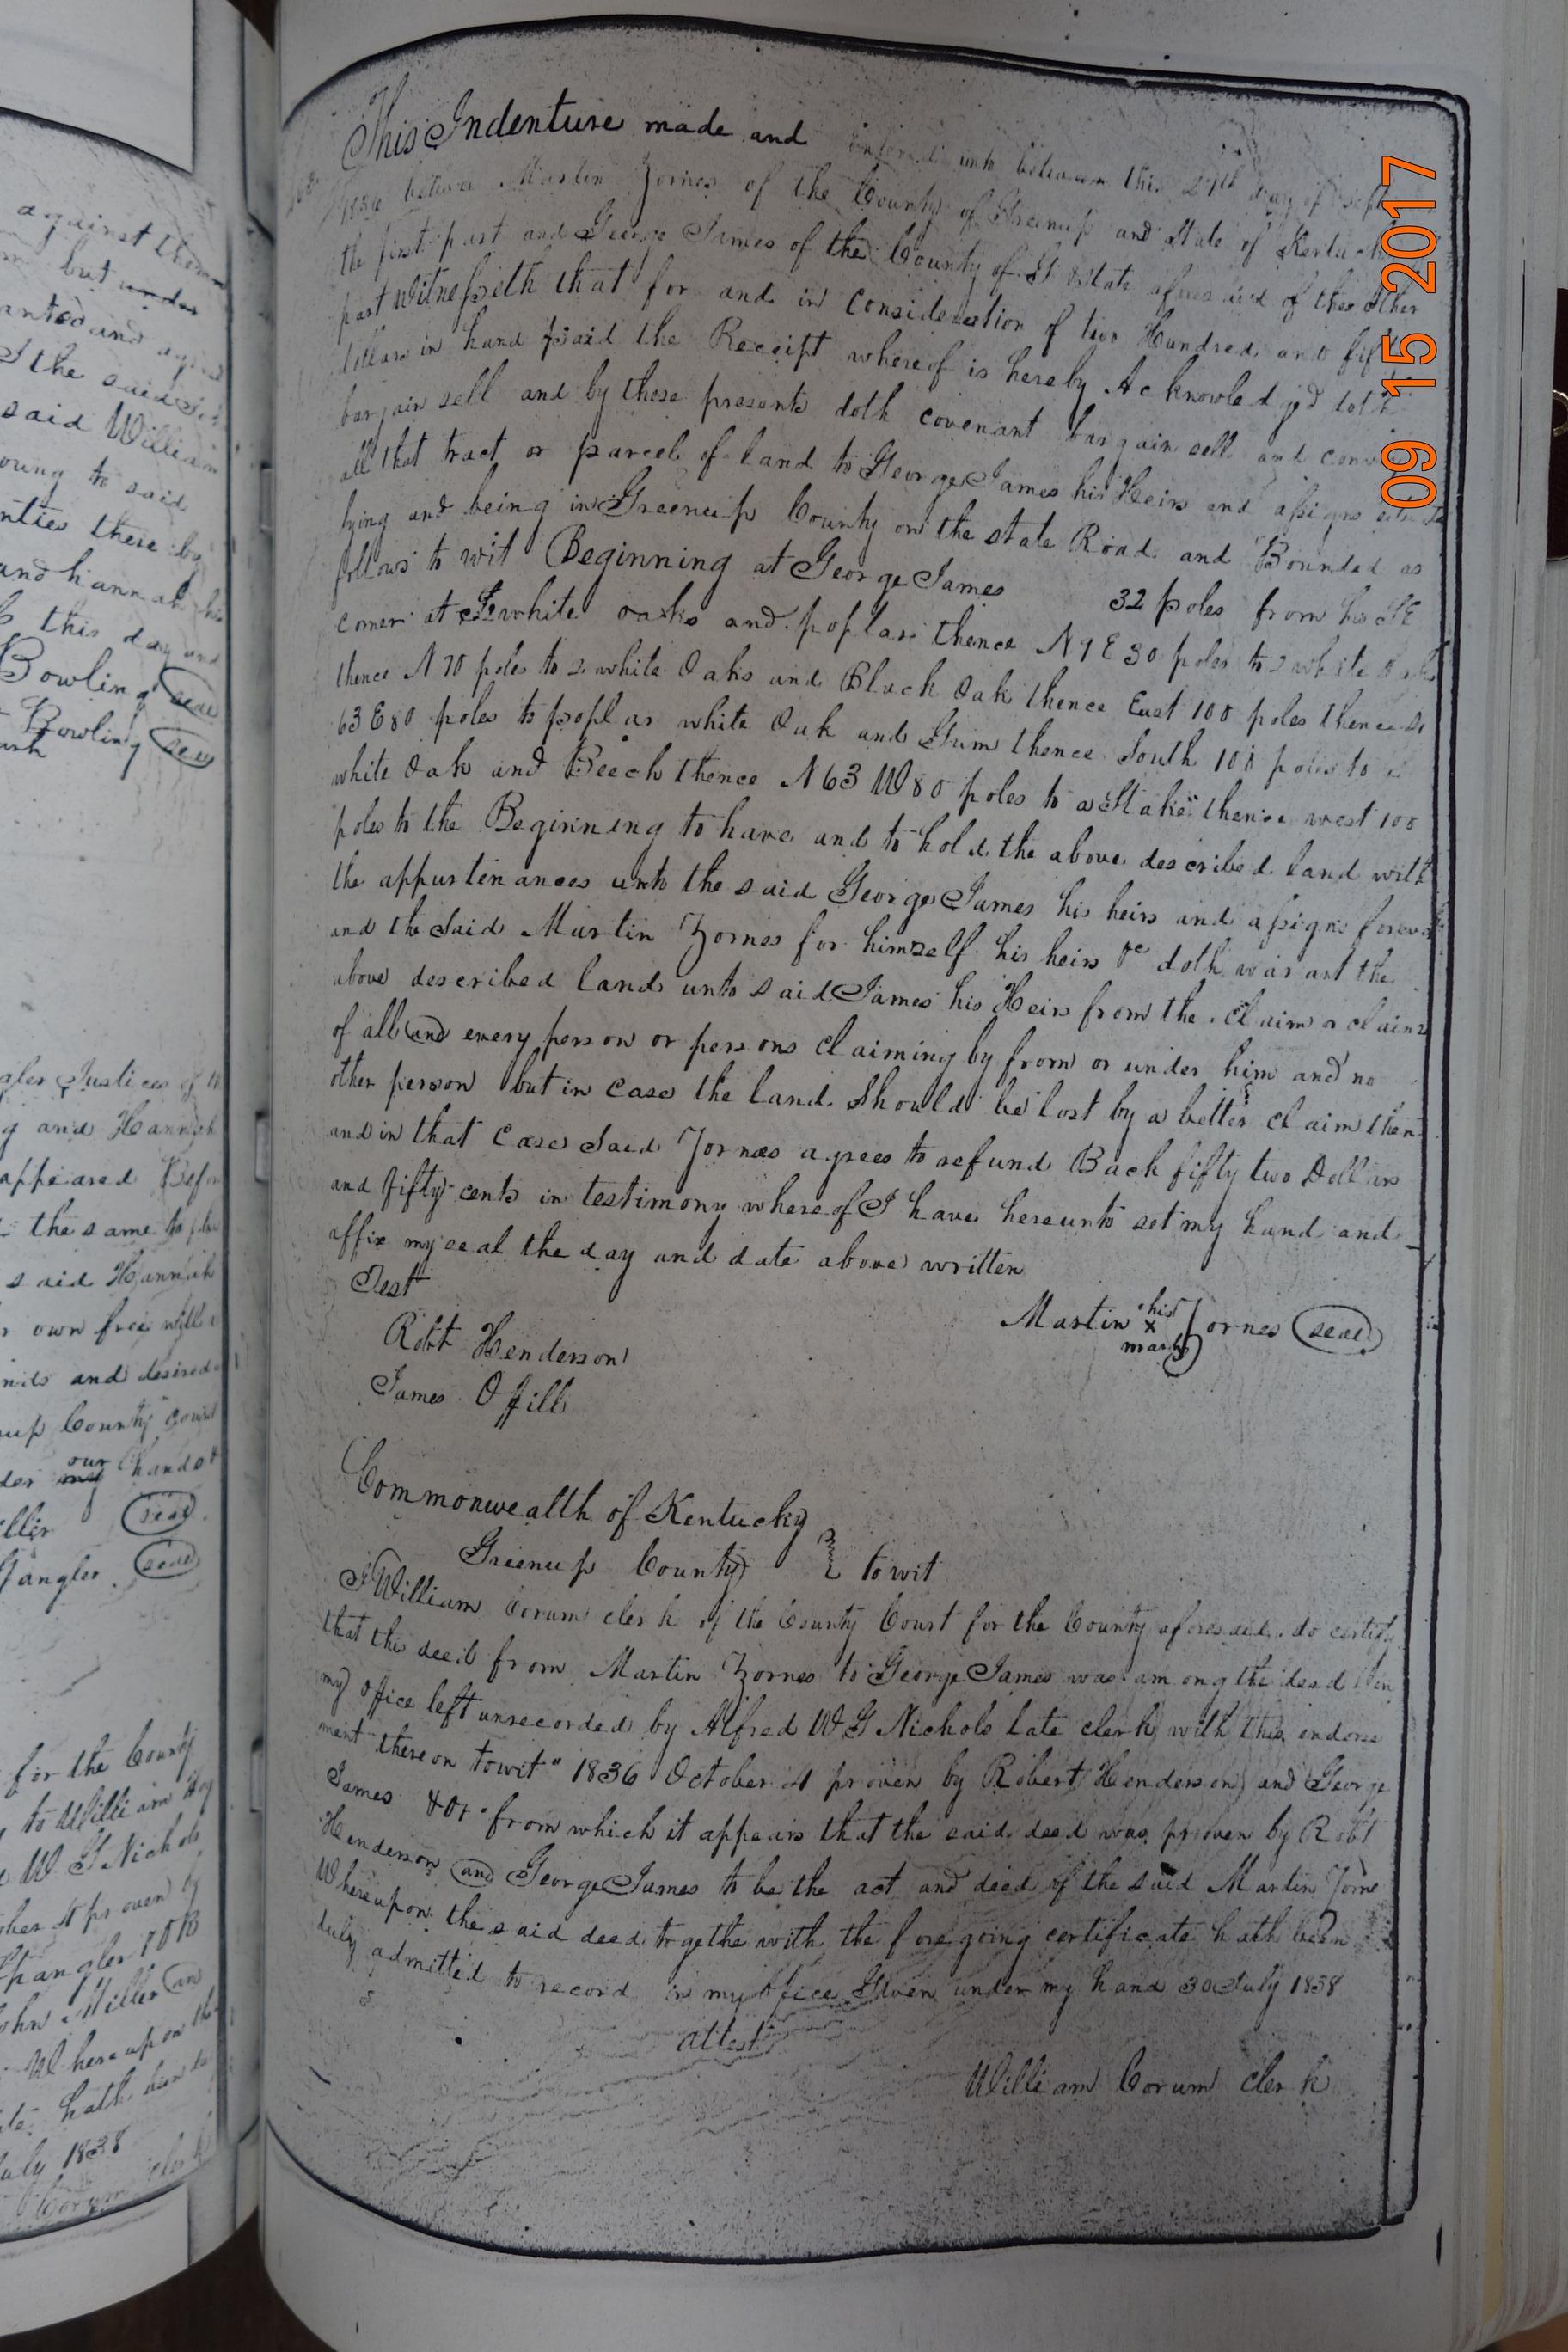 against them
but under
anted and agreed
the said
said William
oung to said
nties there by
and hannah his
this day and
Bowling seal
Bowling seal
Justices of
g and Hannah
appeared Befor
the same to
said Hannah
own free will
and desired
up County Court
our
der my hands &
seal
angler seal
for the County
to William
W G Nichols
ober 4 proven by
angler &OB
ohn Miller and
Whereupon the
hath been
July 1838
This Indenture made and entered unto between this 27th day of Sept
1836 between Martin Zornes of the County of Greenup and State of Kentucky
the first part and George James of the County of G & State aforesaid of the Other
part Witnesseth that for and in consideration of two Hundred and fifty
dollars in hand paid the Receipt whereof is hereby Acknowledged doth
bargain sell and by these presents doth covenant bargain sell and convey
all that tract or parcel of land to George James his Heirs and assigns
lying and being in Greenup County on the state Road and Bounded as
follows to wit Beginning at George James 32 poles from his SE
corner at 2 white oaks and poplar thence N 9 E 30 poles to 2 white Oaks
thence N 70 poles to 2 white Oaks and Black Oak thence East 100 poles thence S
63 E 80 poles to poplar white Oak and Gum thence South 100 poles to a
white Oak and Beech thence N 63 W 80 poles to a Stake thence west 100
poles to the Beginning to have and to hold the above described land with
the appurtenances unto the said George James his heirs and assigns forever
and the Said Martin Zornes for himself his heirs &c doth warant the
above described land unto said James his Heirs from the claim or claims
of all and every person or persons claiming by from or under him and no
other person but in case the land Should be lost by a better claim then
and in that Case Said Zornes agrees to refund Back fifty two Dollars
and fifty cents in testimony whereof I have hereunto set my hand and
affix my seal the day and date above written
Test
Martin his x mark Zornes seal
Robt Henderson
James Offill
Commonwealth of Kentucky
Greenup County towit
I William Corum clerk of the County Court for the County aforesaid do certify
that this deed from Martin Zornes to George James was among the deed in
my office left unrecorded by Alfred W G Nichols late clerk with this endorse
ment thereon towit " 1836 October 4 proven by Robert Henderson and George
James &Or " from which it appears that the said deed was proven by Robt
Henderson and George James to be the act and deed of the said Martin Zorne
Whereupon the said deed togethe with the foregoing certificate hath been
duly admitted to record in my office Given under my hand 30 July 1838
attest
William Corum clerk
09 15 2017